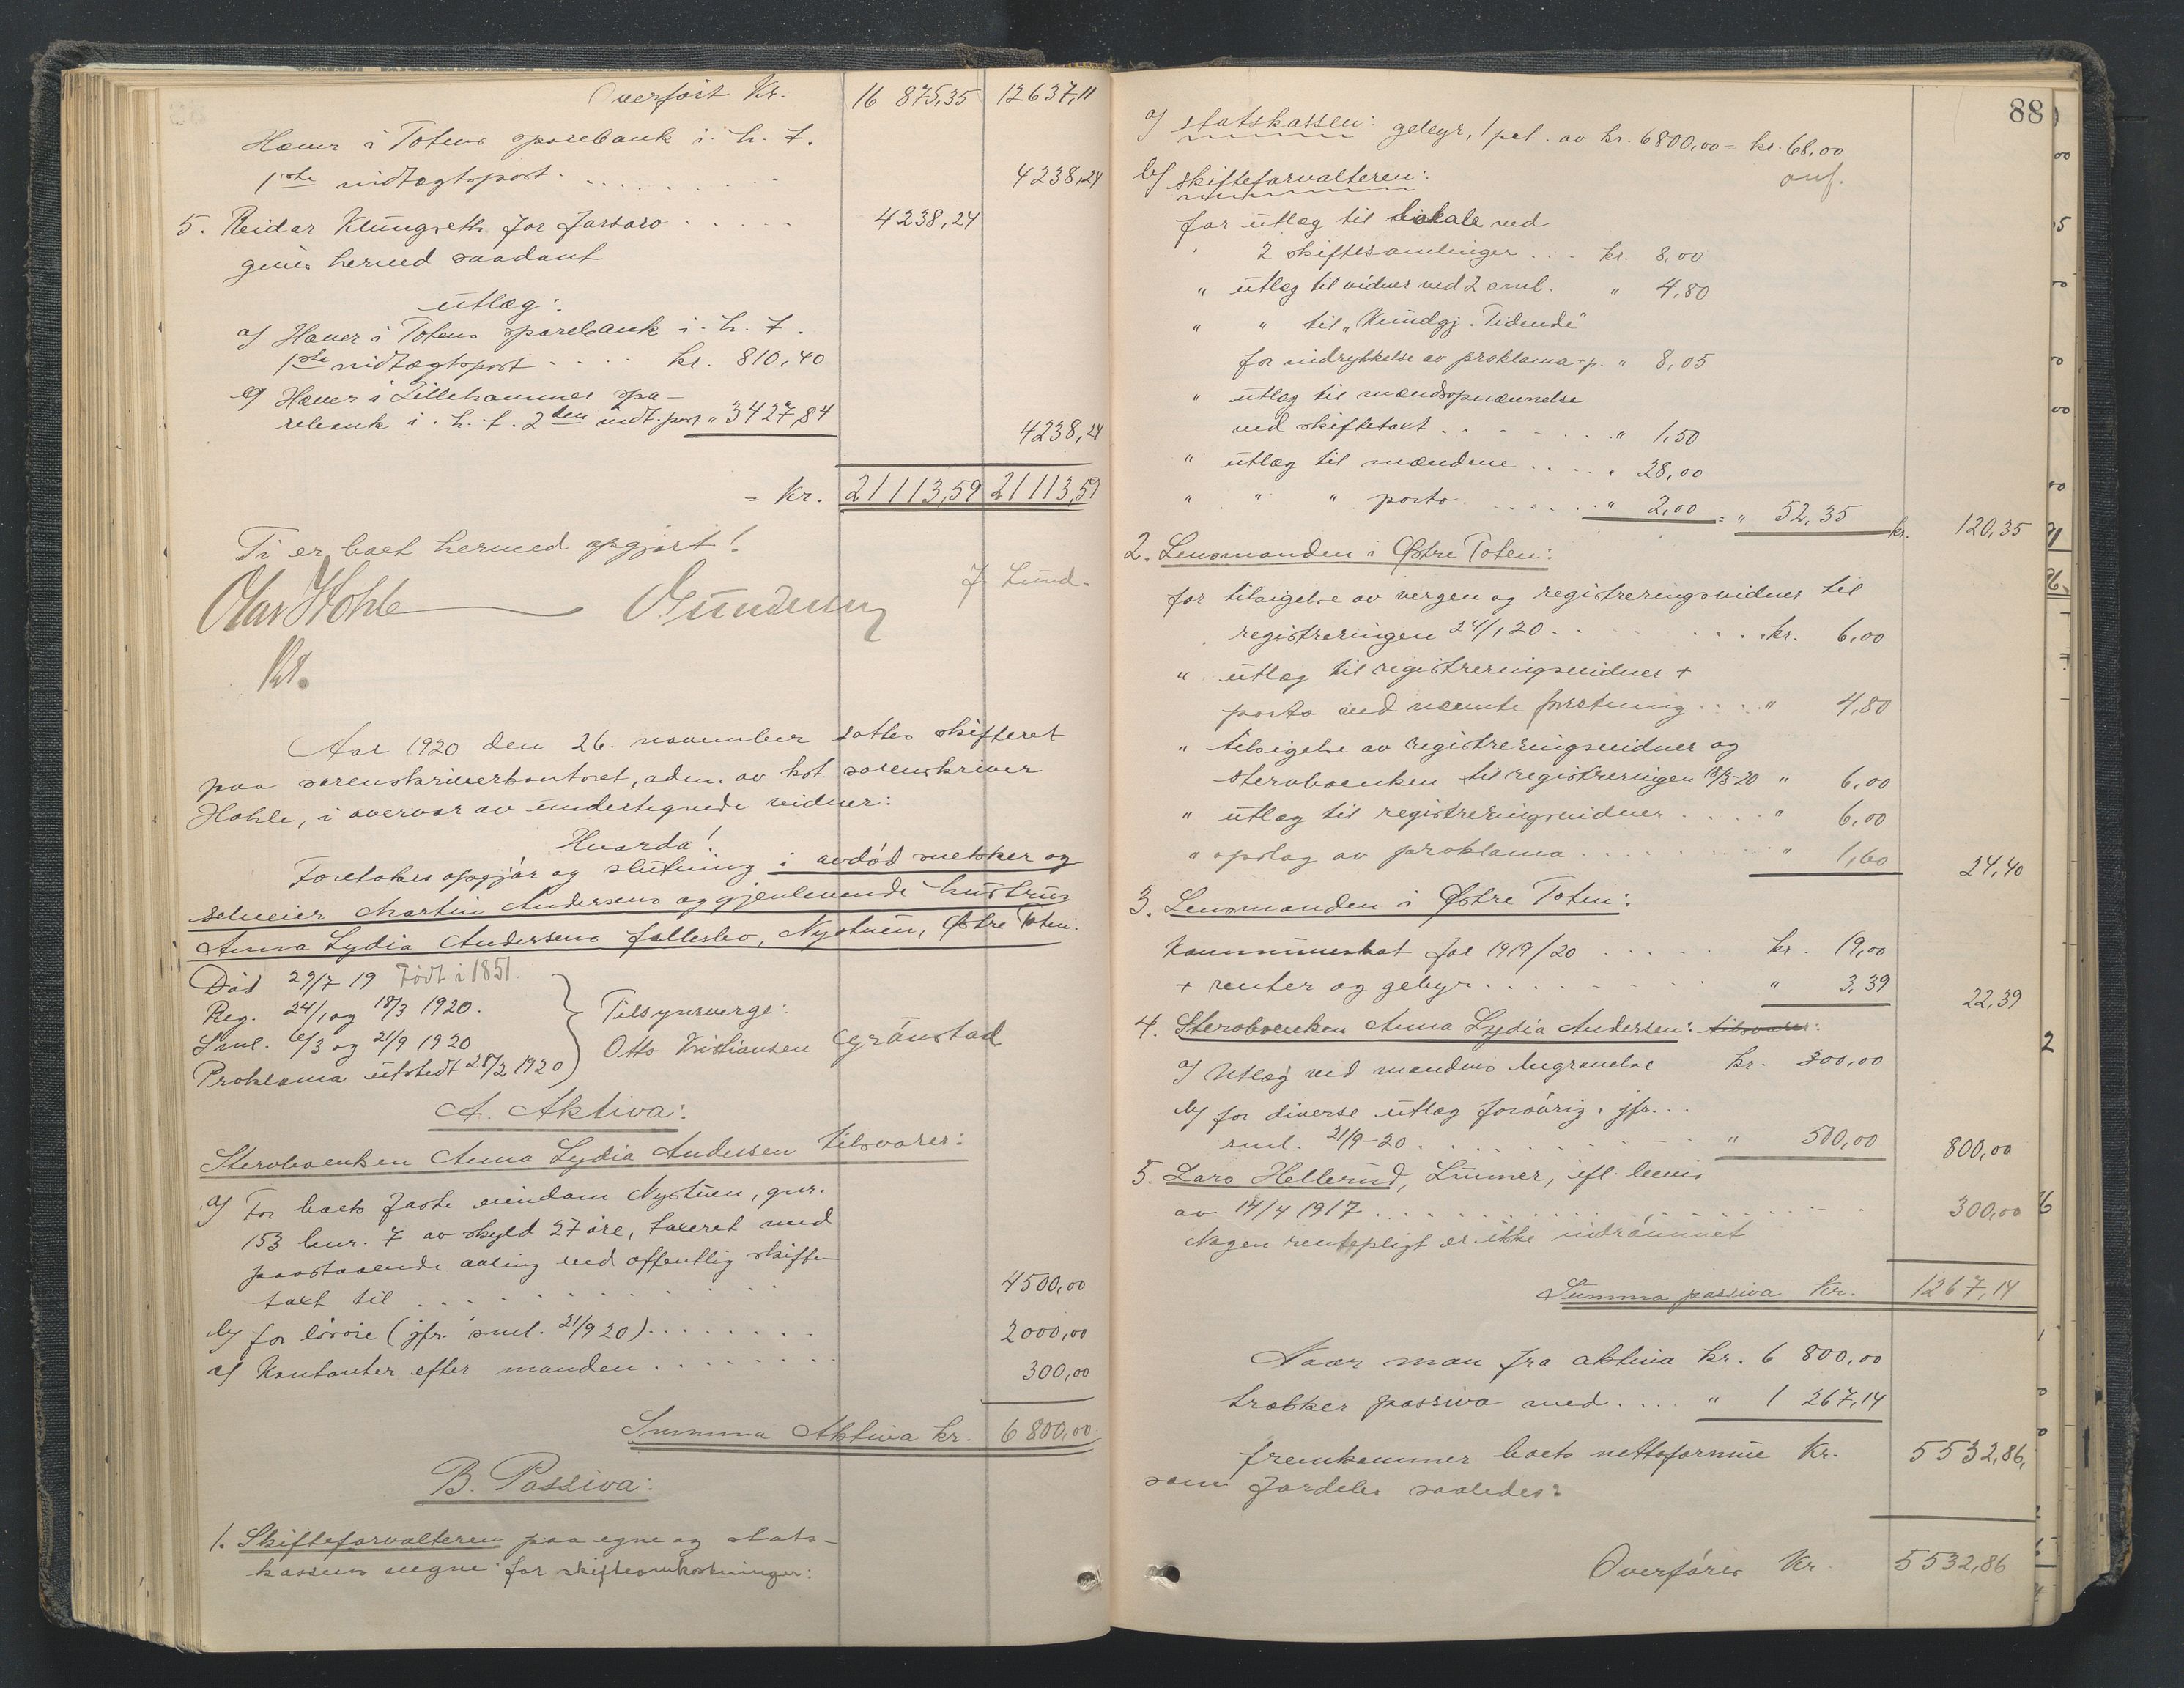 Overført Kr. 16 875,35 12637,11
Hæver i Totens sparebank i. h. t.
1ste indtægtspost. . . . . . . . . . 4238,24
5. Reidar Klungseth for forsaro . . . . . 4238,24
giver herved saadant
utlæg:
a/ Hæver i Totens sparebank i. h. t.
1ste indtægtspost . . . . kr. 810,40
Hæver i Lillehammer spa-
rebank i. h. t. 2den indt. post " 3427,84 4238,24
= Kr. 21113,59 21113,59
Ti er boet hermed opgjørt!
Olav Hohle J. Lund.
Kst.
Aar 1920 den 26. november sattes skifteret
paa sorenskriverkontoret, adm. av kst. sorenskriver
Hohle, i overvær av undertegnede vidner:
Hvorda!
Foretokes opgjør og slutning i avdød snekker og
selveier Martin Andersens og gjenlevende hustrus
Anna Lydia Andersens fællesbo, Nystuen, Østre Toten.
Død 29/7 19 Født i 1851.
Reg. 24/1 og 18/3 1920.
Saml. 6/3 og 21/9 1920
Proklama utstedt 28/2 1920
Tilsynsverge:
Otto Kristiansen Grønstad
A. Aktiva:
Stervboenken Anna Lydia Andersen tilsvarer:
a/ For boets faste eiendom Nystuen, gnr.
153 bnr. 7 av skyld 27 øre, taxeret med
paastaaende avling ved offentlig skifte-
taxt til . . . . . . . . . . 4500,00
b/ for løsøre (jfr. saml. 21/9 20) . . . . . . . 2000,00
c/ Kontanter efter manden . . . . . . . . 300,00
Summa Aktiva kr. 6 800,00
B. Passiva:
1. Skifteforvalteren paa egne og stats-
kassens vegne for skifteomkostninger:
88
a/ statskassen: gebyr, 1 pct. av kr. 6800,00 = kr. 68,00
anf.
b/ skifteforvalteren:
for utlæg til lokale ved
2 skiftesamlinger . . . kr. 8,00
" utlæg til vidner ved 2 saml. " 4,80
" " til "Kundgj. Tidende"
for indrykkelse av proklama " 8,05
" utlæg til mændsopnævnelse
ved skiftetaxt . . . . . . . " 1,50
" utlæg til mændene . . . . " 28,00
" " " porto . . . . . . " 2,00 = " 52,35 kr. 120,35
2. Lensmanden i Østre Toten:
for tilsigelse av vergen og registreringsvidner til
registreringen 24/1 20 . . . . . . . . kr. 6,00
" utlæg til registreringsvidner +
porto ved nævnte forretning . . . . " 4,80
" tilsigelse av registreringsvidner og
stervboenken til registreringen 18/3-20 " 6,00
" utlæg til registreringsvidner . . . . . " 6,00
" opslag av proklama . . . . . . . . . " 1,60 24,40
3. Lensmanden i Østre Toten:
Kommuneskat for 1919/20 . . . . . kr. 19,00
+ renter og gebyr . . . . . . . . " 3,39 22,39
4. Stervboenken Anna Lydia Andersen: tilsvarer:
a/ Utlæg ved mandens begravelse kr. 300,00
b/ for diverse utlæg forøvrig, jfr. . .
saml. 21/9-20 . . . . . . . . . . " 500,00 800,00
5. Lars Hellerud, Lunner, efl. bevis
av 14/4 1917 . . . . . . . . . . . . . . 300,00
Nogen rentepligt er ikke indrømmet
Summa passiva Kr. 1267,14
Naar man fra aktiva kr. 6 800,00
trækker passiva med . . . . " 1 267,14
fremkommer boets nettoformue Kr. 5532,86,
som fordeles saaledes:
Overføres Kr. 5532,86